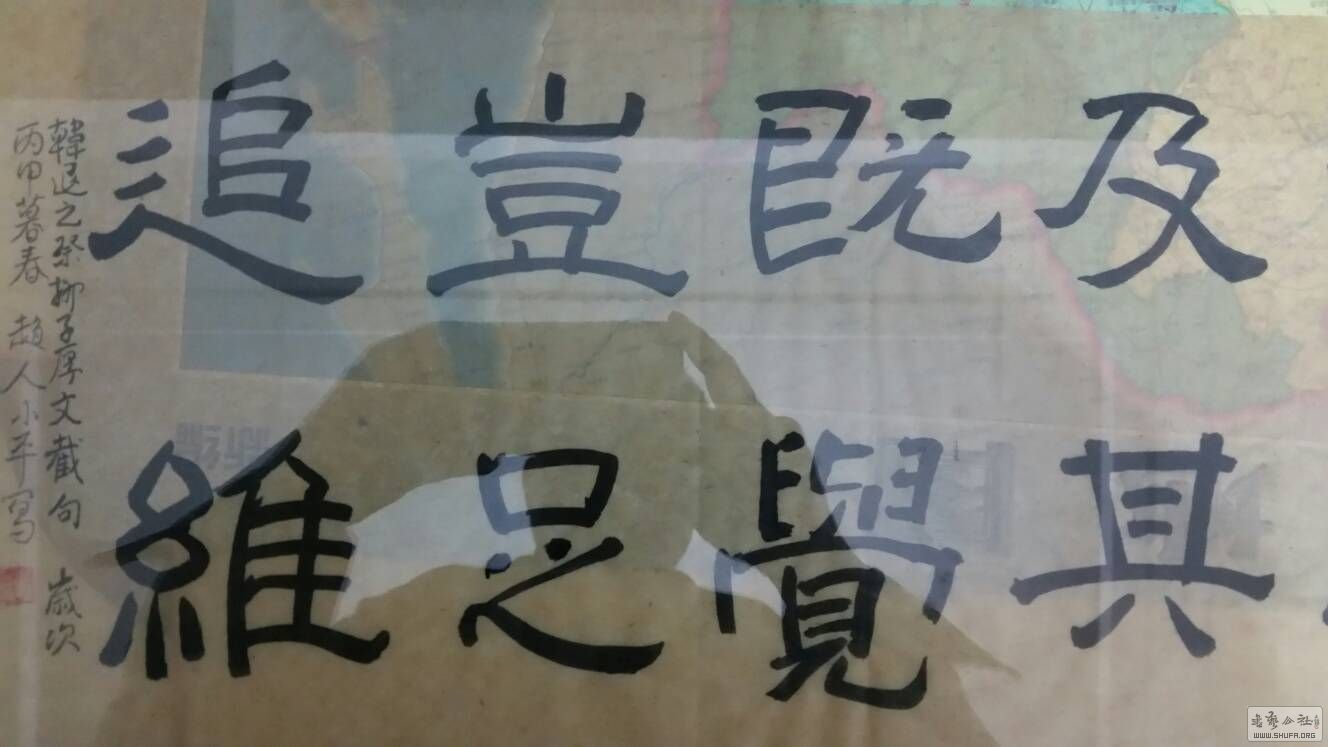 及其
既覺
豈足
追維
韓退之祭柳子厚文截句 歲次
丙申暮春 趙人小平寫
书艺公社
WWW.SHUFA.ORG